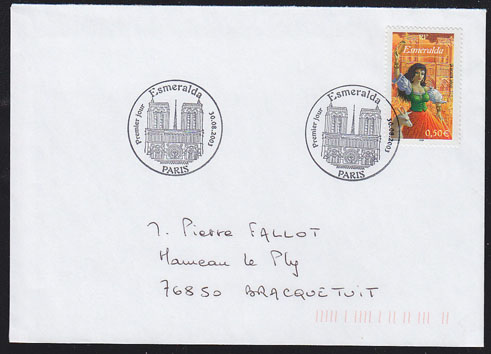 Esmeralda
Premier jour
30.08.2003
PARIS
Esmeralda
Premier jour
30.08.2003
PARIS
Esmeralda
0,50€
M. Pierre FALLOT
Hameau le Ply
76850 BRACQUETUIT